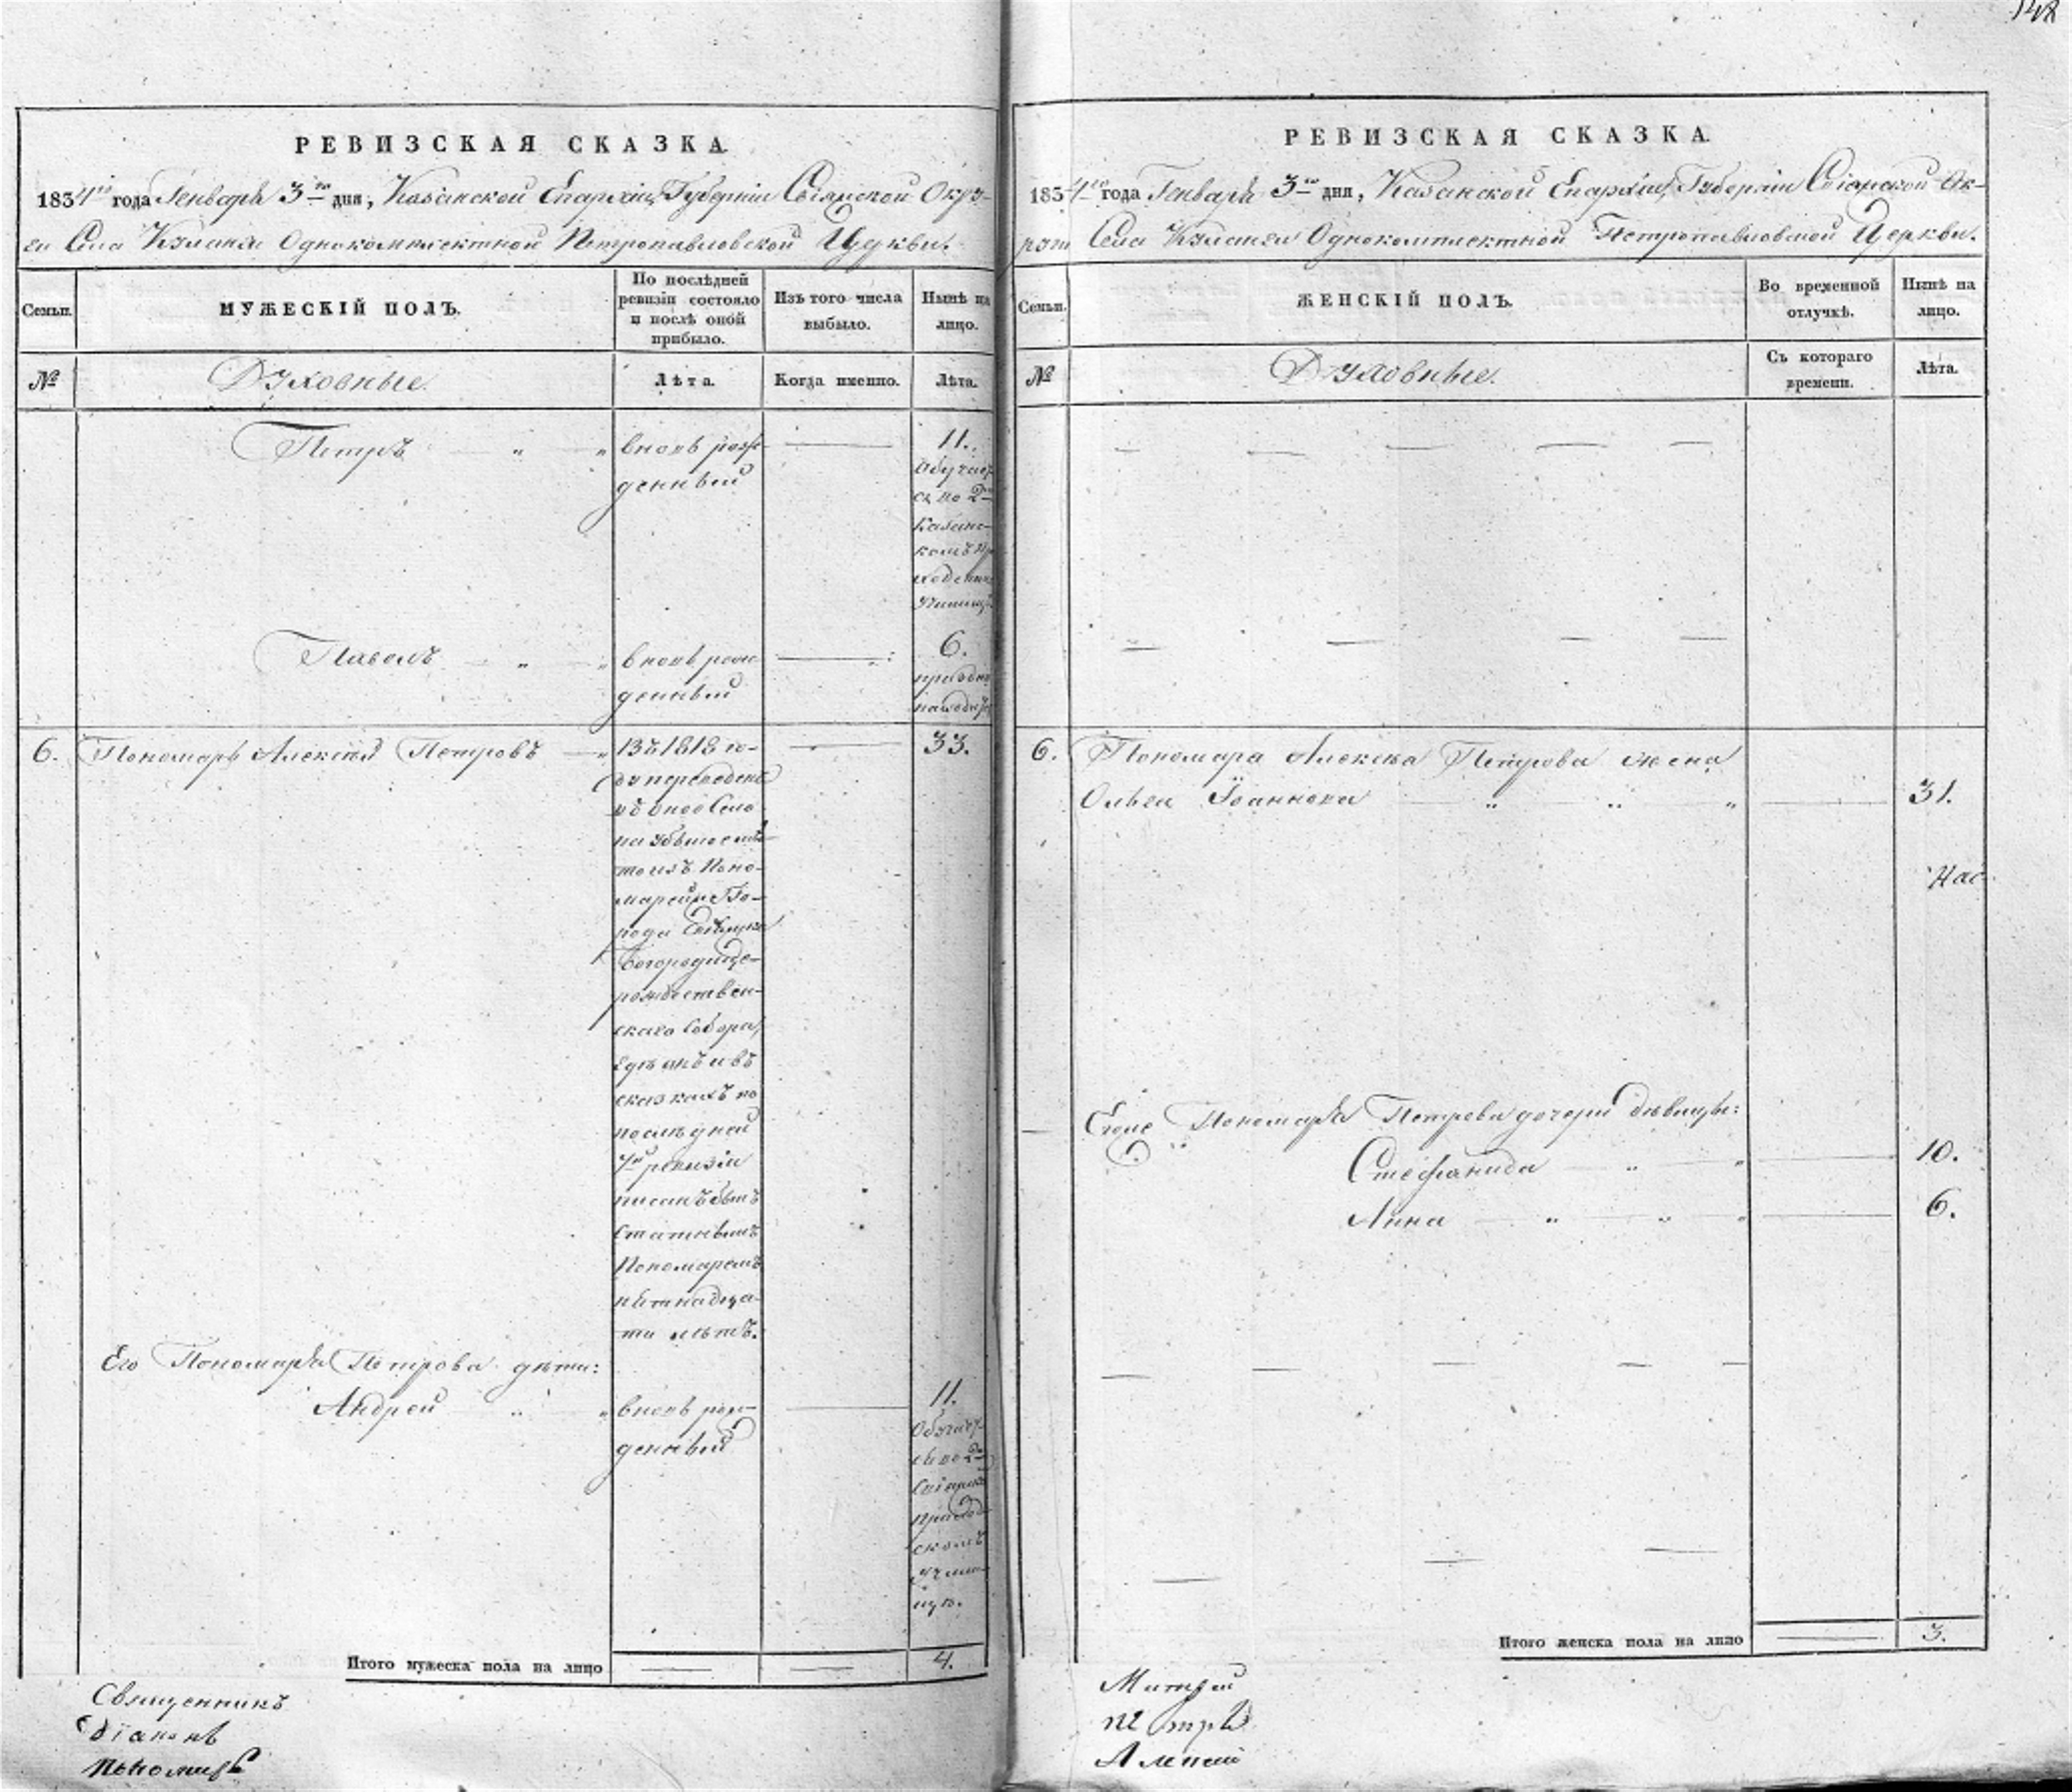 148
РЕВИЗСКАЯ СКАЗКА
1834го года Генваря 3го дня, Казанской Епархіи, Губерніи Свіяжской Окру-
ги Села Кулангі Однокомплектной Петропавловской Церкви.
Семьи.
МУЖЕСКІЙ ПОЛЪ.
По послѣдней
ревизіи состояло
и послѣ оной
прибыло.
Изъ того числа
выбыло.
Нынѣ на
лицо.
№
Духовные.
Лѣта.
Когда именно.
Лѣта.
Петръ
вновь рож-
денный
11.
Обучает
ся во 2мъ
Казанс-
комъ
училищ
Павелъ
вновь рож-
денный
6.
6.
Пономарь Алексѣй Петровъ
Въ 1818 го-
ду переведенъ
въ оное Село
на убылое мѣ-
сто изъ Поно-
марей Го-
рода
Богородице-
рождествен-
скаго Собора,
гдѣ онъ и въ
сказкахъ по
послѣдней
7й ревизіи
писанъ былъ
Статнымъ
Пономаремъ
пятнадца-
ти лѣтъ.
33.
Его Пономаря Петрова дѣти:
Андрей
вновь рож-
денный
11.
Обучает-
ся во 2мъ
Свіяжск
Приход-
скомъ
учили-
щѣ.
Итого мужеска пола на лицо
4.
Священникъ
Діаконъ
Пономарь
РЕВИЗСКАЯ СКАЗКА.
1834го года Генваря 3го дня, Казанской Епархіи, Губерніи Свіяжской Ок-
руги Села Кулангі Однокомплектной Петропавловской Церкви.
Семьи.
ЖЕНСКІЙ ПОЛЪ.
Во временной
отлучкѣ.
Нынѣ на
лицо.
№
Духовные.
Съ котораго
времени.
Лѣта.
6.
Пономаря Алексѣя Петрова жена
Ольга Іоаннова
31.
Его Пономаря Петрова дочери дѣвицы:
Стефанида
10.
Анна
6.
Итого женска пола на лицо
3.
Петръ